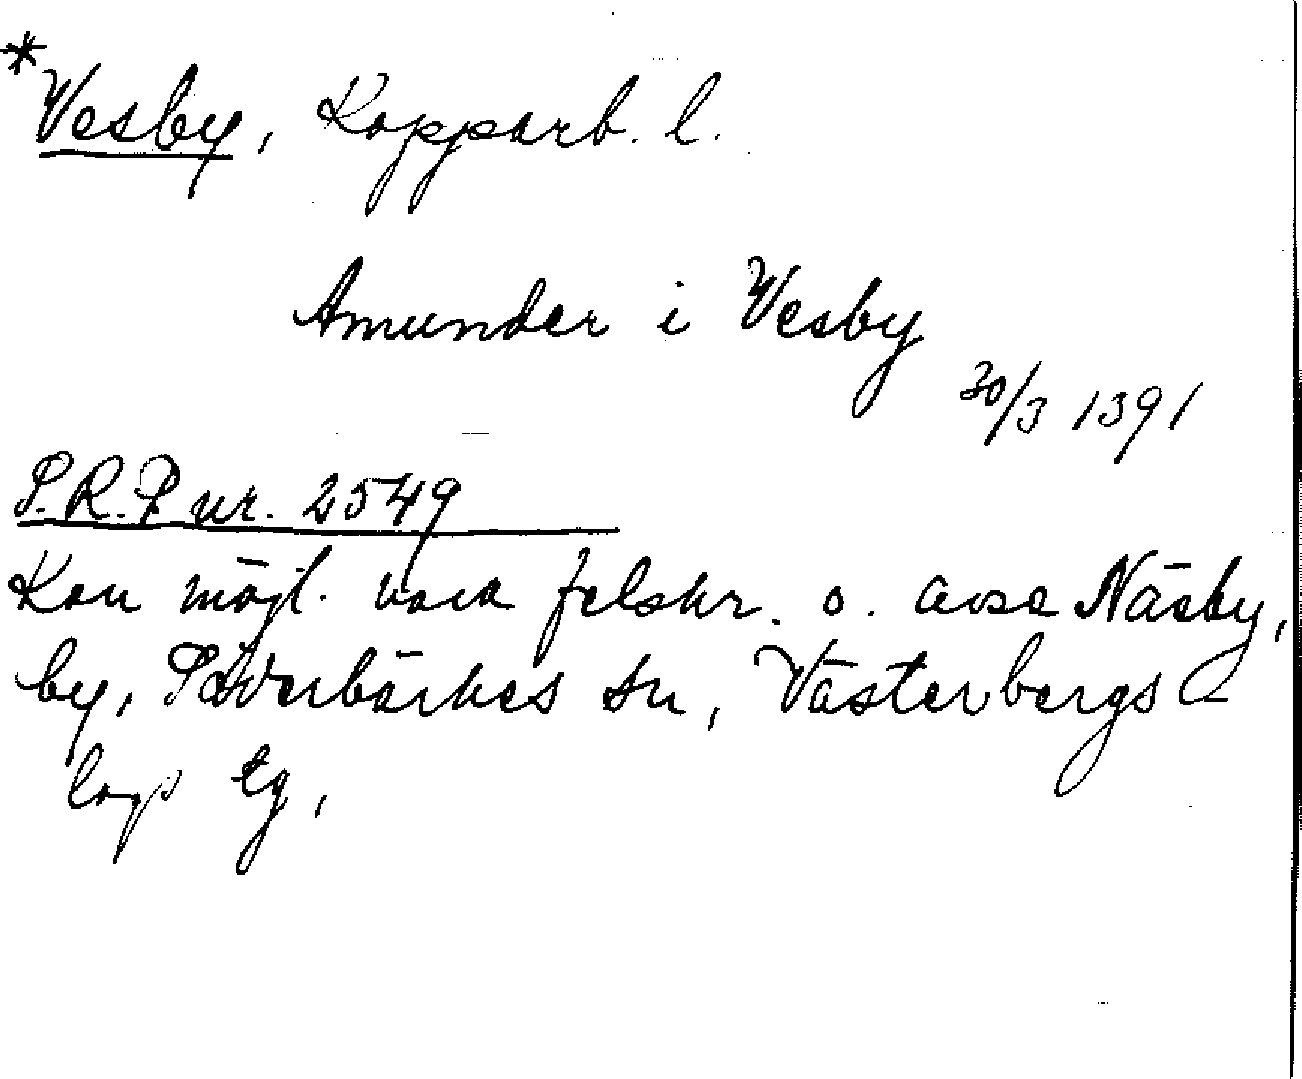 *
Vesby, Kopparb. l.
Amunder i Vesby
30/3 1391
S.R.P nr. 2549
Kan möjl. vara felskr. o. avse Näsby,
by, Söderbärkes sn, Västerbergs-
lags tg,